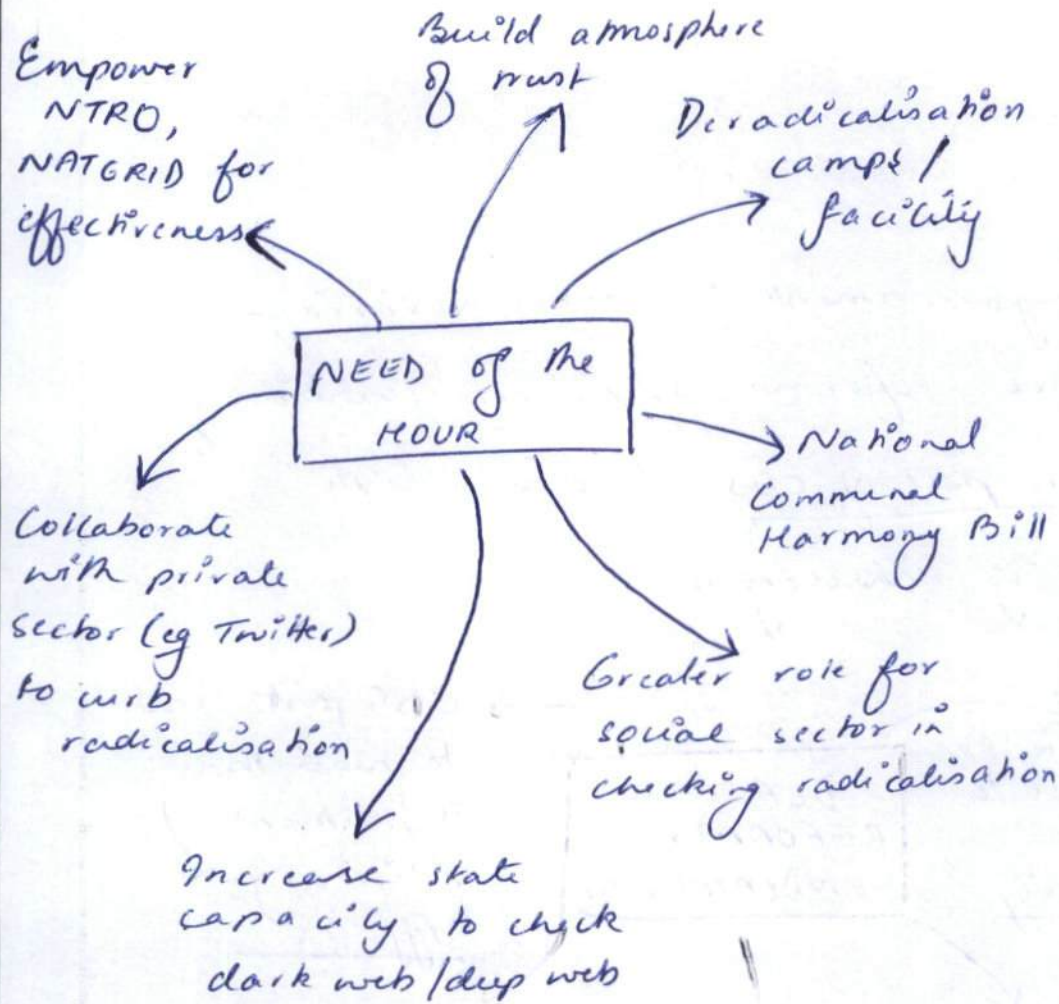 Build atmosphere
of trust
Empower
NTRO,
NATGRID for
effectiveness
Deradicalisation
camps /
facility
NEED of the
HOUR
National
Communal
Harmony Bill
Collaborate
with private
sector (eg Twitter)
to curb
radicalisation
Greater role for
social sector in
checking radicalisation
Increase state
capacity to check
dark web/deep web